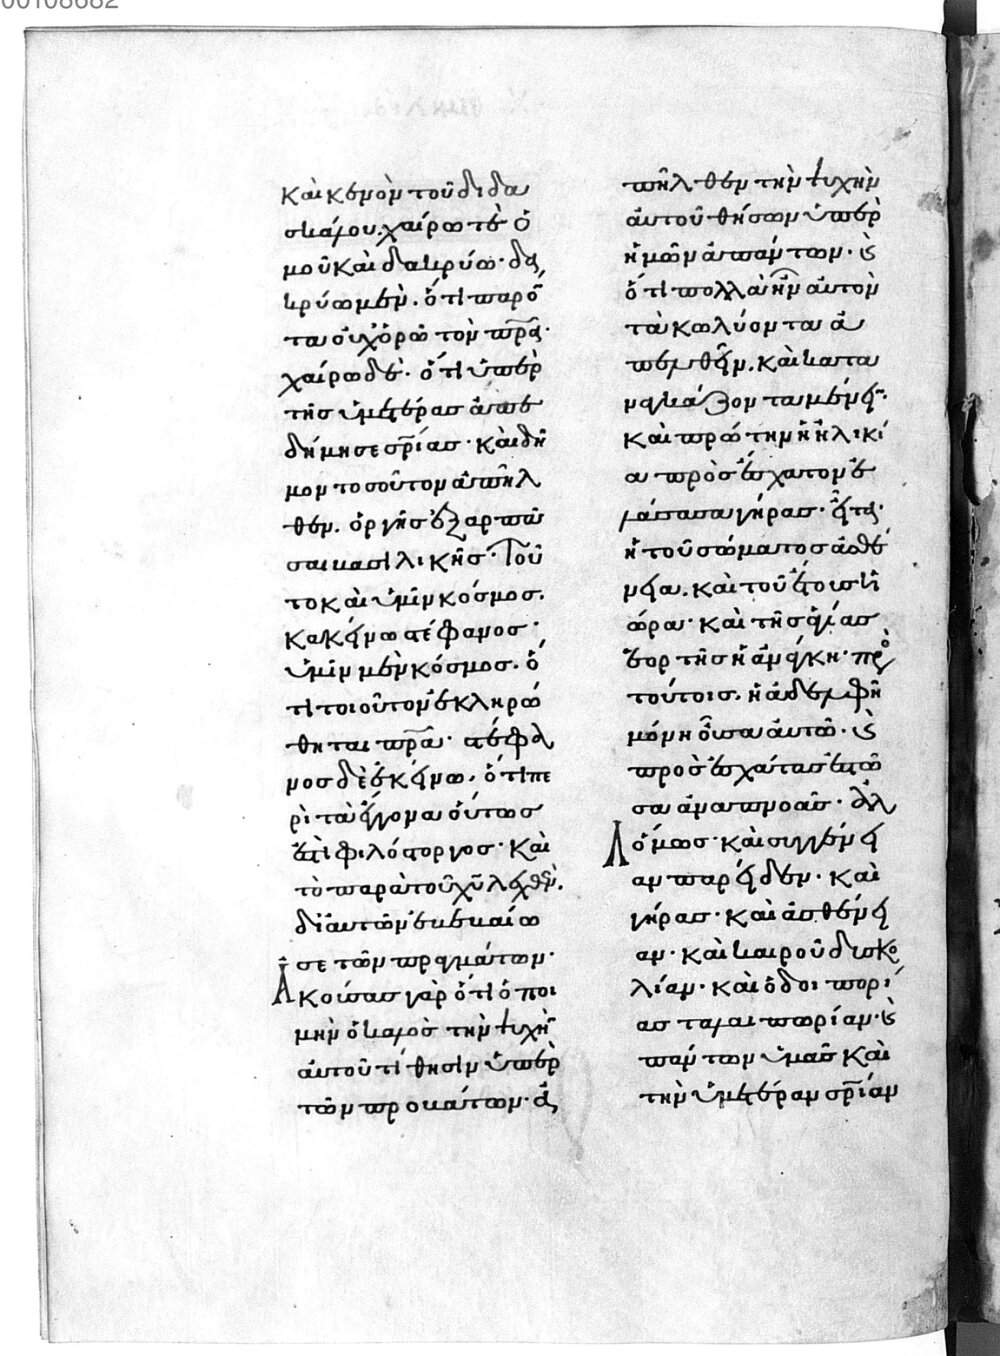 00108682
καὶ κενὸν τοῦ διδα
σκάλου. χαίρω τὲ ὁ
μοῦ καὶ δακρύω· δα
κρύω μὲν. ὅτι παρό
τα οὐχ ὁρῶ τὸν πρα·
χαίρω δὲ· ὅτι ὑπὲρ
τῆς ὑμετέρας ἀπε
δήμησε σρίας· καὶ δῆ
μον τοσοῦτον ἀπῆλ
θεν. ὀργῆς ἐξαρπά
σαι βασιλικῆς· Τοῦ
το καὶ ὑμῖν κόσμος.
κακείνω στέφανος·
ὑμῖν μὲν κόσμος. ὅ
τι τοιοῦτον ἐκληρώ
θηται πρα· στέφα
νος δὲ ἐκείνω, ὅτι πε
ρὶ τὰ ἔγγονα οὕτως
ἐστὶ φιλόστοργος· καὶ
τὸ παρὰ τοῦ χῦ λεχθὲν.
δι' αὐτῶν ἐβεβαίω
σε τῶν πραγμάτων·
Ἀκούσας γὰρ ὅτι ὁ ποι
μὴν ὁ καλὸς τὴν ψυχὴ
αὐτοῦ τίθησιν ὑπὲρ
τῶν προβάτων· ἀ
πῆλθεν τὴν ψυχὴν
αὐτοῦ θήσων ὑπὲρ
ἡμῶν ἁπάντων· καὶ
ὅτι πολλὰ ἦν αὐτὸν
τὰ κωλύοντα ἀ
πελθεῖν. καὶ κατα
ναγκάζοντα μένειν·
καὶ πρώτην ἡ ἡλικί
α πρὸς ἔσχατον ἐ
λάσασα γήρας· εἶτα·
ἡ τοῦ σώματος ἀσθέ
νεια. καὶ τοῦ ἔτους ἡ
ὥρα· καὶ τῆς ἁγίας
ἑορτῆς ἡ ἀνάγκη· πρὸ
τούτοις. ἡ ἀδελφὴ
μόνη οὖσα αὐτῶ· καὶ
πρὸς ἐσχάτας ἑστῶ
σα ἀναπνοάς· ἀλλ
ὅμως· καὶ συγγένει
αν παρεῖδεν· καὶ
γήρας· καὶ ἀσθένει
αν· καὶ καιροῦ δυσκο
λίαν· καὶ ὁδοιπορί
ας ταλαιπωρίαν· καὶ
πάντων ὑμᾶς καὶ
τὴν ὑμετέραν σρίαν